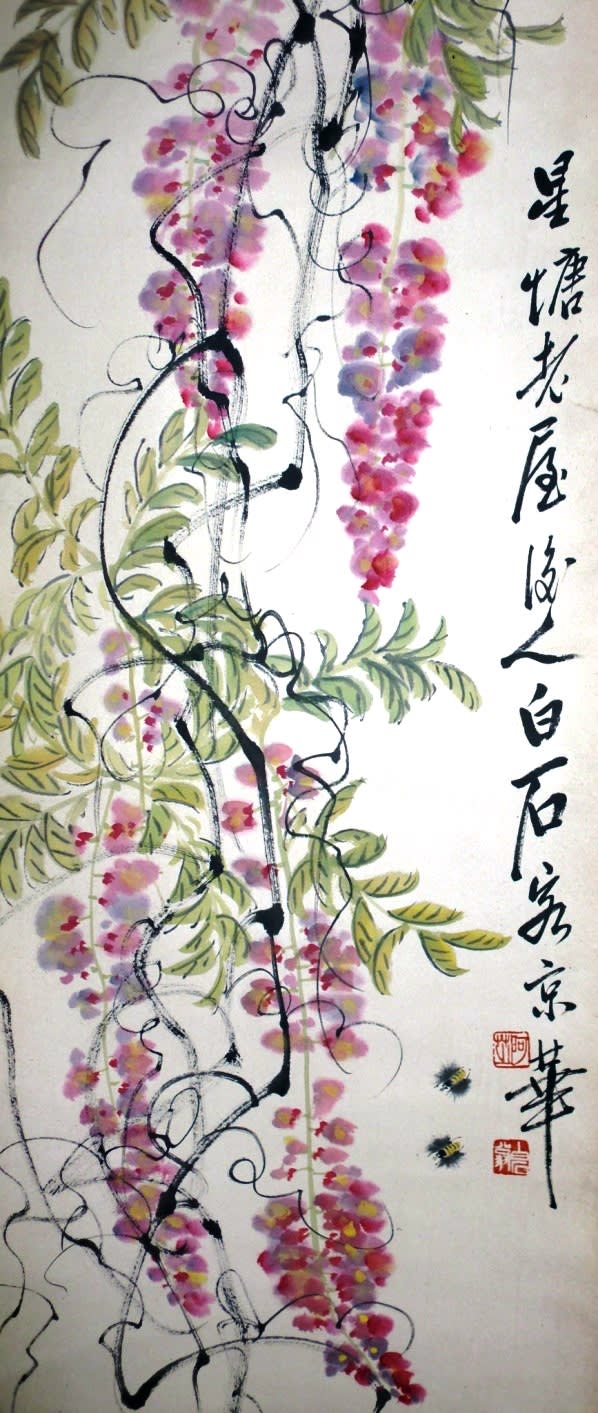 星塘老屋後人白石客京華
阿芝